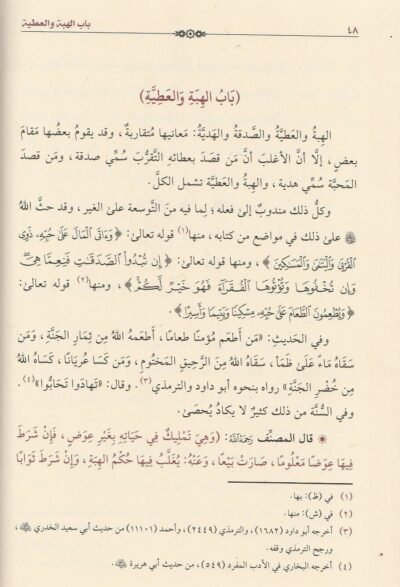 ٤٨ باب الهبة والعطية
(بَابُ الهِبَةِ وَالعَطِيَّةِ)
الهبةُ والعَطيَّةُ والصَّدقةُ والهَديَّةُ: مَعانِيها مُتقاربةٌ، وقد يقومُ بعضُها مَقامَ
بعضٍ، إلَّا أنَّ الأغلبَ أنَّ مَن قصَدَ بعطائهِ التَّقرُّبَ سُمِّي صدقة، ومَن قصدَ
المَحبَّة سُمِّي هدية، والهبةُ والعَطيَّة تشمل الكلَّ.
وكلُّ ذلك مندوبٌ إلىٰ فعله؛ لِما فيه منَ التَّوسعة علىٰ الغير، وقد حثَّ اللهُ
ﷻ علىٰ ذلك في مواضع من كتابه، منها(١) قوله تعالىٰ: ﴿وَءَاتَى ٱلْمَالَ عَلَىٰ حُبِّهِۦ ذَوِى
ٱلْقُرْبَىٰ وَٱلْيَتَـٰمَىٰ وَٱلْمَسَـٰكِينَ﴾، ومنها قوله تعالىٰ: ﴿إِن تُبْدُوا۟ ٱلصَّدَقَـٰتِ فَنِعِمَّا هِىَ
وَإِن تُخْفُوهَا وَتُؤْتُوهَا ٱلْفُقَرَآءَ فَهُوَ خَيْرٌ لَّكُمْ﴾، ومنها(٢) قوله تعالىٰ:
﴿وَيُطْعِمُونَ ٱلطَّعَامَ عَلَىٰ حُبِّهِۦ مِسْكِينًا وَيَتِيمًا وَأَسِيرًا﴾.
وفي الحَديثِ: «مَن أَطعَم مُؤمنًا طعامًا، أَطعَمهُ اللهُ مِن ثِمَارِ الجَنَّةِ، وَمَن
سَقَاهُ مَاءً عَلىٰ ظَمَأ، سَقَاهُ اللهُ مِنَ الرَّحِيقِ المَختُومِ، وَمَن كَسَا عُريَانًا، كَسَاهُ اللهُ
مِن خُضْرِ الجَنَّةِ» رواه بنحوه أبو داود والترمذي(٣). وقال: «تَهادَوا تَحابُّوا»(٤).
وفي السُّنَّة من ذلك كثيرٌ لا يكادُ يُحصَىٰ.
قال المصنِّف رَحِمَهُ اللهُ: (وَهِيَ تَمْلِيكٌ فِي حَيَاتِهِ بِغَيْرِ عِوَضٍ، فَإِنْ شَرَطَ
فِيهَا عِوَضًا مَعْلُومًا، صَارَتْ بَيْعًا، وَعَنْهُ: يُغَلَّبُ فِيهَا حُكْمُ الهِبَةِ، وَإِنْ شَرَطَ ثَوَابًا
(١) في (ظ): بها.
(٢) في (ش): منها.
(٣) أخرجه أبو داود (١٦٨٢)، والترمذي (٢٤٤٩)، وأحمد (١١١٠١) من حديث أبي سعيد الخدري ﷺ،
ورجح الترمذي وقفه.
(٤) أخرجه البخاري في الأدب المفرد (٥٤٩)، من حديث أبي هريرة